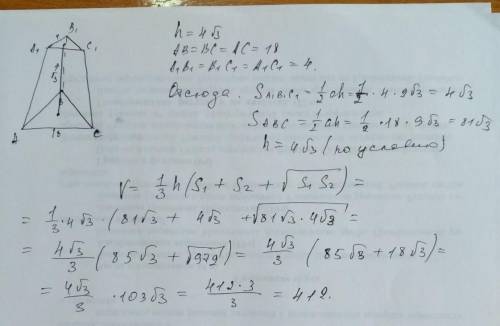 h = 4√3
AB = BC = AC = 18
A₁B₁ = B₁C₁ = A₁C₁ = 4.
Отсюда. S A₁B₁C₁ = 1/2 ah = 1/2 · 4 · 2√3 = 4√3
S ABC = 1/2 ah = 1/2 · 18 · 9√3 = 81√3
h = 4√3 (по условию)
B₁
A₁ C₁
A 18 C
V = 1/3 h (S₁ + S₂ + √S₁ S₂) =
= 1/3 · 4√3 · (81√3 + 4√3 + √81√3 · 4√3 =
= 4√3/3 (85√3 + √972) = 4√3/3 (85√3 + 18√3) =
= 4√3/3 · 103√3 = 412 · 3/3 = 412.